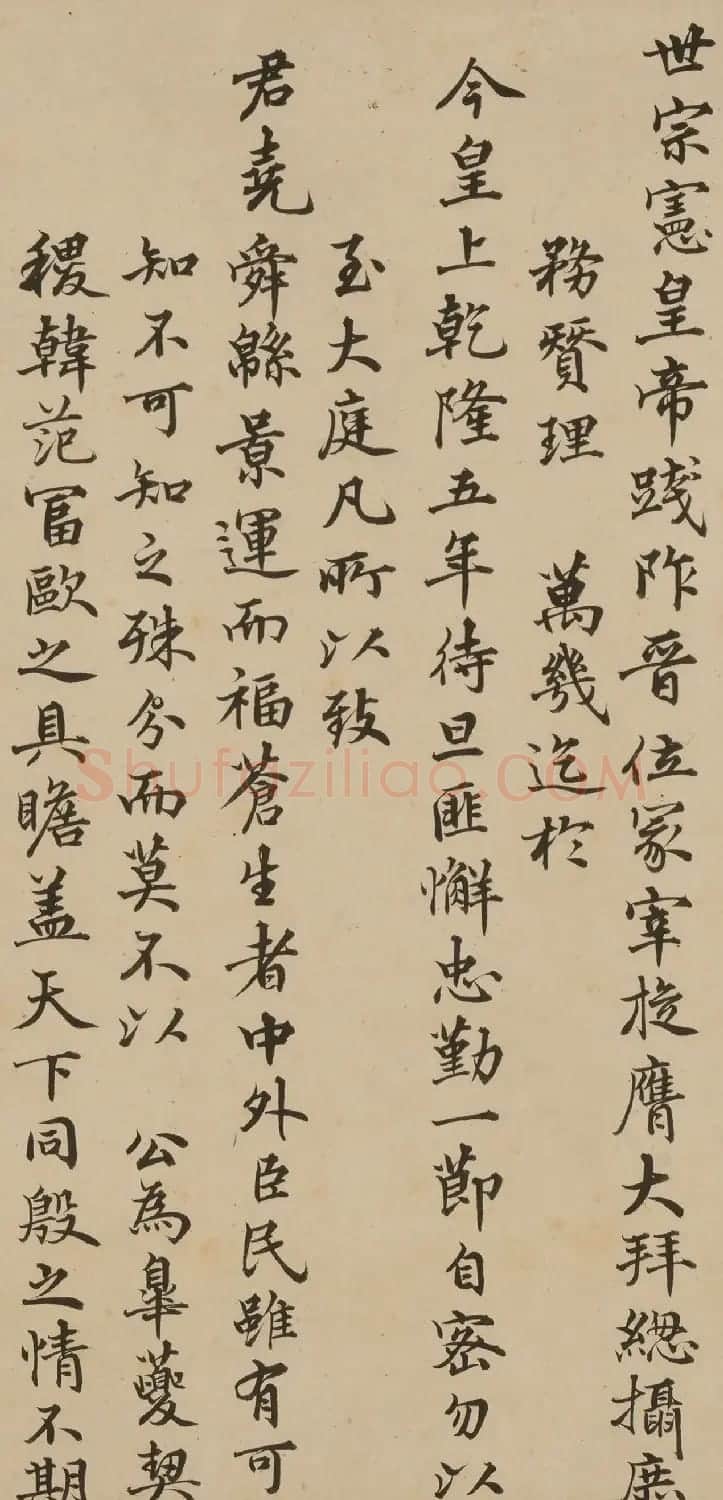 世宗憲皇帝踐阼晉位冢宰旋膺大拜總攝庶
務贊理 萬幾迄於
今皇上乾隆五年待旦匪懈忠勤一節自密勿以
至大庭凡所以致
君堯舜緜景運而福蒼生者中外臣民雖有可
知不可知之殊分而莫不以 公為皋夔契
稷韓范富歐之具瞻盖天下同殷之情不期
Shufaziliao.COM